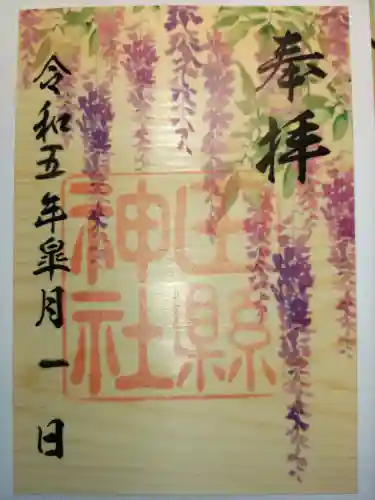 奉拝
山縣
神社
令和五年皐月一日